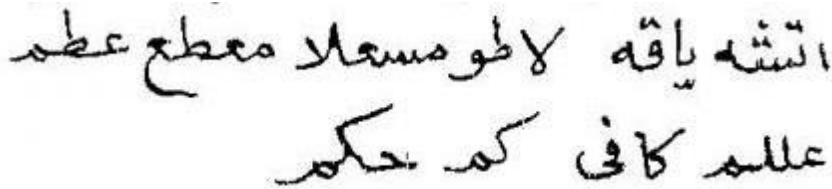 اتتته ياقه لاطو مسعلا معطع عطم
عللم كافى كم حكم